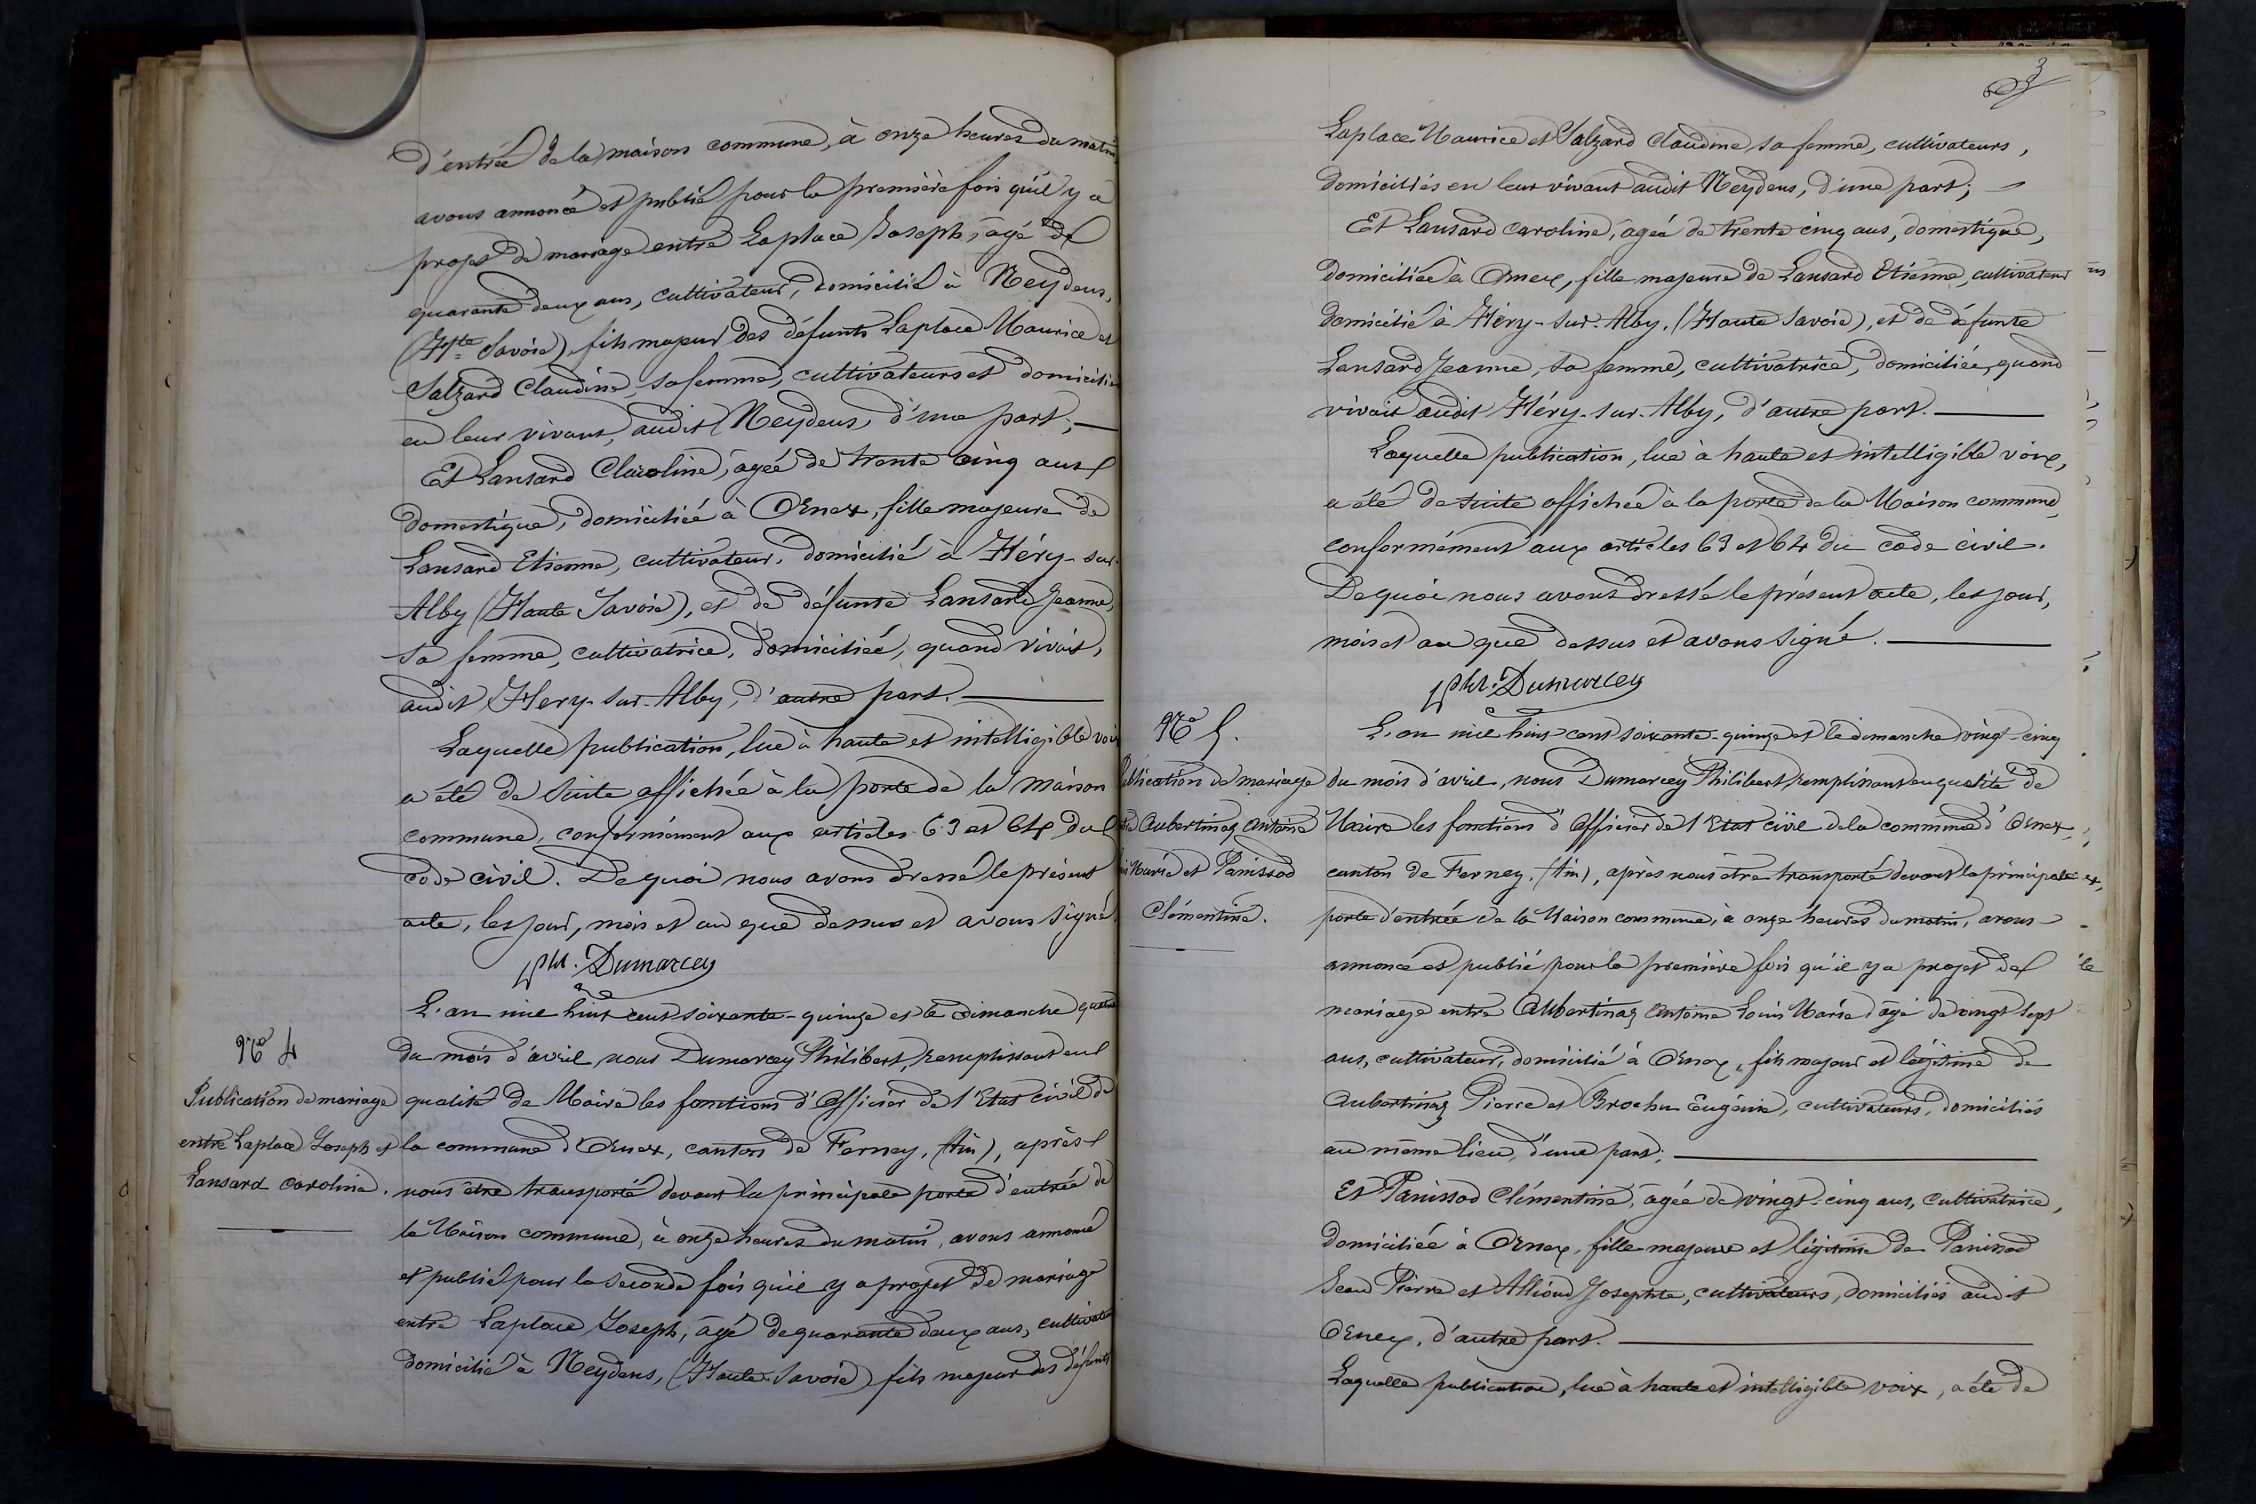 d'entrée de la maison commune, à onze heures du matin
avons annoncé et publié pour la première fois qu'il y a
projet de mariage entre Laplace Joseph, âgé de
quarante deux ans, cultivateur, domicilié à Neydens,
(Hte Savoie), fils majeur des défunts Laplace Maurice et
Salzard Claudine, sa femme, cultivateurs et domiciliés
en leur vivant, audit Neydens, d'une part;
Et Lansard Claroline, âgée de trente cinq ans
domestique, domiciliée à Ornex, fille majeure de
Lansard Etienne, cultivateur, domicilié à Héry-sur-
Alby (Haute Savoie), et de défunte Lansard Jeanne,
sa femme, cultivatrice, domiciliée, quand vivait,
audit Hery-sur-Alby, d'autre part.
Laquelle publication, lue à haute et intelligible voix
a été de suite affichée à la porte de la maison
commune, conformément aux articles 63 et 64 du
code civil. De quoi nous avons dressé le présent
acte, les jour, mois et an que dessus et avons signé
Phl. Dumarcey
No 4
Publication de mariage
entre Laplace Joseph et
Lansard Caroline.
L'an mil huit cent soixante-quinze et le dimanche quatre
du mois d'avril nous Dumarcey Philibert, remplissant en
qualité de Maire les fonctions d'Officier de l'Etat civil de
la commune d'Ornex, canton de Ferney, (Ain), après
nous être transporté devant la principale porte d'entrée de
la Maison commune, à onze heures du matin, avons annoncé
et publié pour la seconde fois qu'il y a projet de mariage
entre Laplace Joseph, âgé de quarante deux ans, cultivateur
domicilié à Neydens, (Haute-Savoie) fils majeur des défunts
3
Laplace Maurice et Salzard Claudine sa femme, cultivateurs,
domiciliés en leur vivant audit Neydens, d'une part;
Et Lansard Caroline, âgée de trente cinq ans, domestique,
domiciliée à Ornex, fille majeure de Lansard Etienne, cultivateur
domicilié à Héry-sur-Alby, (Haute Savoie), et de défunte
Lansard Jeanne, sa femme, cultivatrice, domiciliée, quand
vivait audit Héry-sur-Alby, d'autre part.
Laquelle publication, lue à haute et intelligible voix,
a été de suite affichée à la porte de la Maison commune,
conformément aux articles 63 et 64 du code civil.
De quoi nous avons dressé le présent acte, les jour,
mois et an que dessus et avons signé.
Phl. Dumarcey
No 5.
Publication de mariage
entre Aubertinaz Antoine
Louis Marie et Panissod
Clémentine.
L'an mil huit cent soixante-quinze et le dimanche vingt-cinq
du mois d'avril, nous Dumarcey Philibert, remplissant en qualité de
Maire les fonctions d'Officier de l'Etat civil de la commune d'Ornex,
canton de Ferney, (Ain), après nous être transporté devant la principale
porte d'entrée de la Maison commune, à onze heures du matin, avons
annoncé et publié pour la première fois qu'il y a projet de
mariage entre Aubertinaz Antoine Louis Marie âgé de vingt sept
ans, cultivateur, domicilié à Ornex, fils majeur et légitime de
Aubertinaz Pierre et Brochu Eugénie, cultivateurs, domiciliés
au même lieu, d'une part;
Et Panissod Clémentine, âgée de vingt-cinq ans, cultivatrice,
domiciliée à Ornex, fille majeure et légitime de Panissod
Jean Pierre et Alliod Josephte, cultivateurs, domiciliés audit
Ornex, d'autre part.
Laquelle publication, lue à haute et intelligible voix, a été de